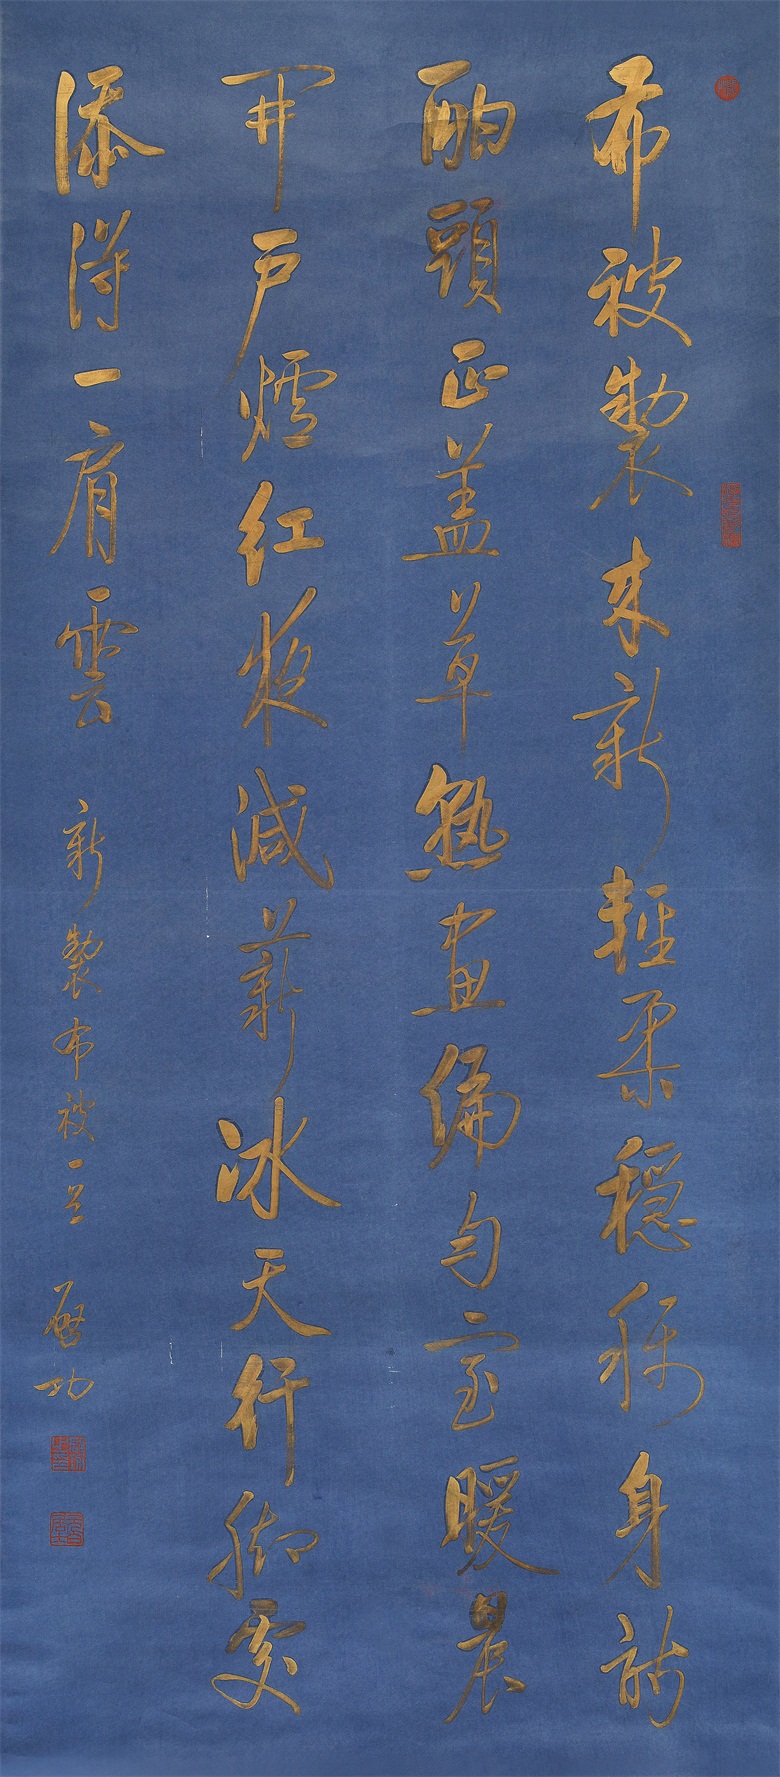 布被製來新輕柔穩稱身
酣頭正蓋草熟畫偏勻室暖晨
開戶爐紅夜減薪冰天行腳處
添得一肩雲 新製布被一首 啟功